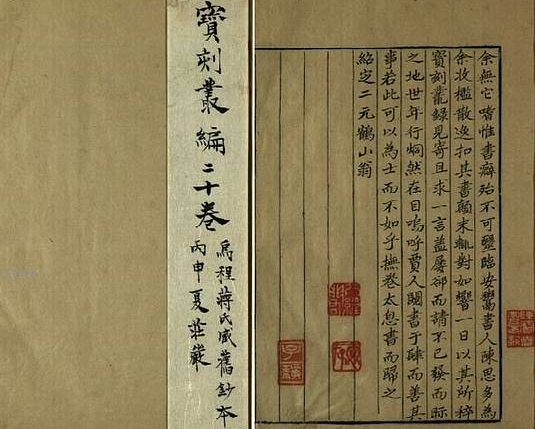 余無它嗜惟書癖殆不可毉臨安鬻書人陳思多為
余收檻散逸扣其書顛末輒對如響一日以其所稡
寶刻叢錄見寄且求一言盖屢却而請不已發而眎
之地世年行烱然在目嗚呼賈人闚書于肆而善其
事若此可以為士而不如乎撫卷太息書而歸之
紹定二元鶴山翁
寶刻叢編二十卷
烏程蔣氏舊鈔本
丙申夏莊嚴